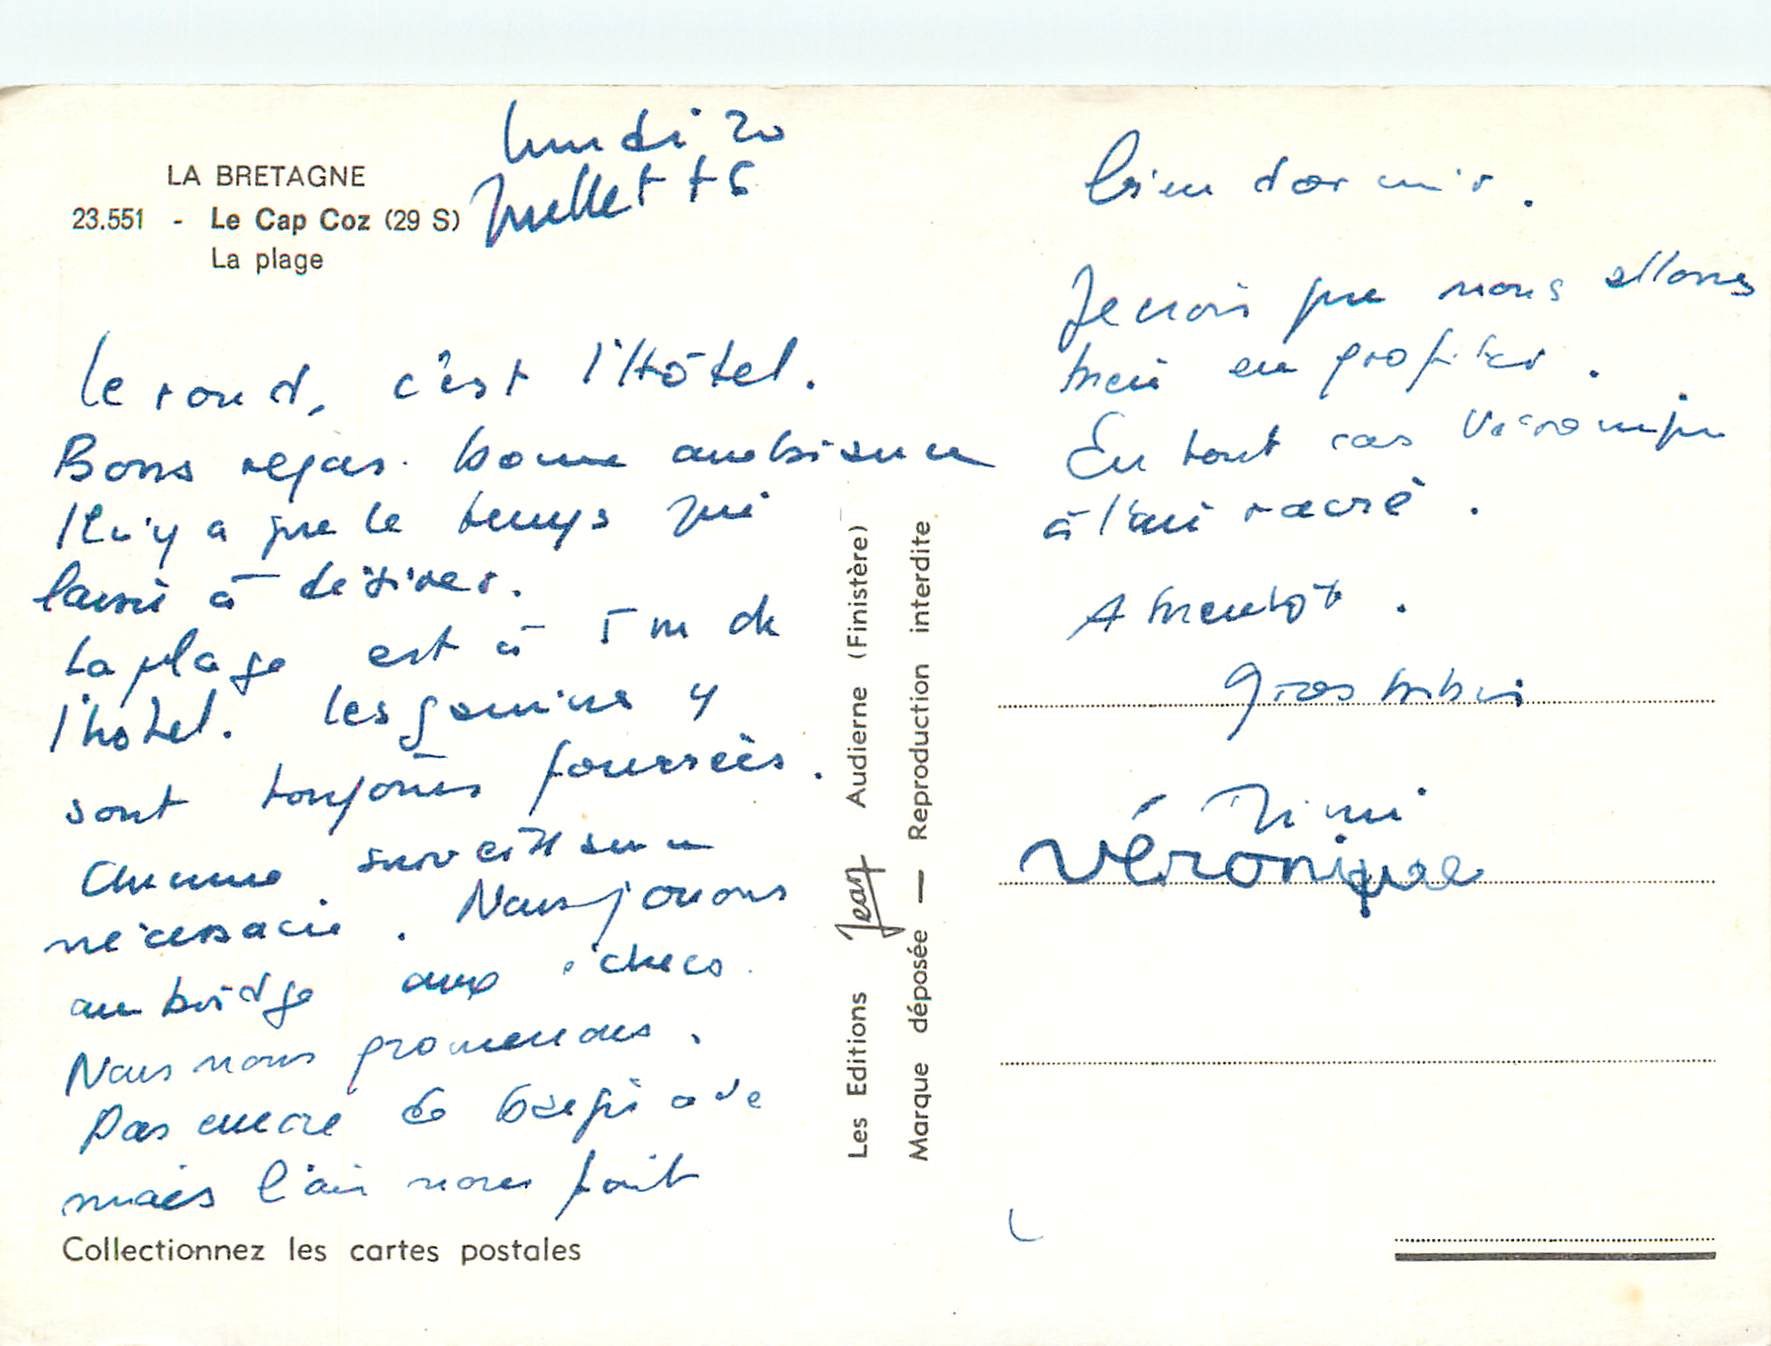 LA BRETAGNE
23.551 - Le Cap Coz (29 S)
La plage
lundi 20
Juillet
Le rond, c'est l'Hôtel.
Bons repas. bonne ambiance
Il n'y a que le temps qui
laisse à désirer.
La plage est à 5 m de
l'hôtel. Les gamins y
sont toujours fourrées.
Aucune surveillance
nécessaire. Nous jouons
au bridge aux échecs.
Nous nous promenons.
Pas encore de baignade
mais l'air nous fait
Collectionnez les cartes postales
Les Editions Jean Audierne (Finistère)
Marque déposée — Reproduction interdite
bien dormir.
Je crois que nous allons
bien en profiter.
En tout cas Véronique
à l'air
A bientôt.
Gros bibis
Mimi
Véronique